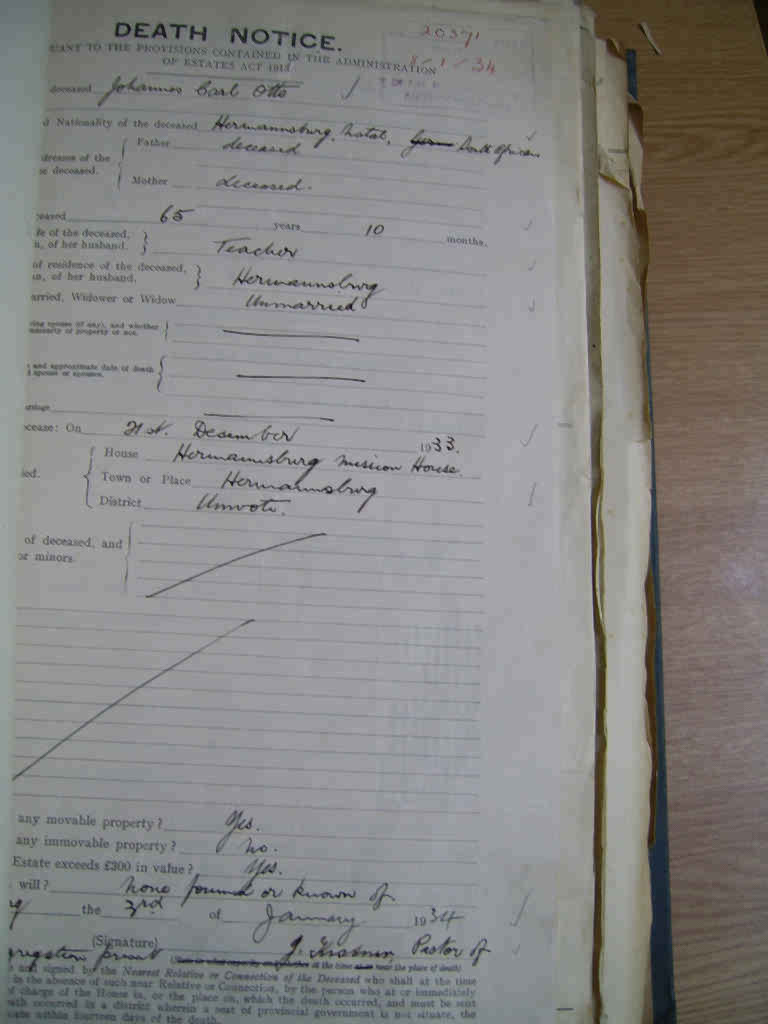 DEATH NOTICE.
20371
UANT TO THE PROVISIONS CONTAINED IN THE ADMINISTRATION
8-1-34
OF ESTATES ACT 1913.
deceased Johannes Carl Otto
d Nationality of the deceased Hermannsburg, Natal, South African
Father deceased
dresses of the
e deceased.
Mother deceased.
ceased 65 years 10 months.
fe of the deceased,
n, of her husband. Teacher
of residence of the deceased,
an, of her husband. Hermannsburg
arried, Widower or Widow Unmarried
ving spouse (if any), and whether
mmunity of property or not.
e and approximate date of death
d spouse or spouses.
arriage
ecease: On 21st. Desember 1933.
House Hermannsburg Mission House.
ied. Town or Place Hermannsburg
District Umvoti.
of deceased, and
or minors.
any movable property? Yes.
any immovable property? No.
Estate exceeds £300 in value? Yes.
will? None found or known of
g the 3rd of January 1934
(Signature) Pastor of
present at the time near the place of death)
e and signed by the Nearest Relative or Connection of the Deceased who shall at the time
in the absence of such near Relative or Connection, by the person who at or immediately
f charge of the House in, or the place on, which the death occurred, and must be sent
eath occurred in a district wherein a seat of provincial government is not situate, the
rate within fourteen days of the death.